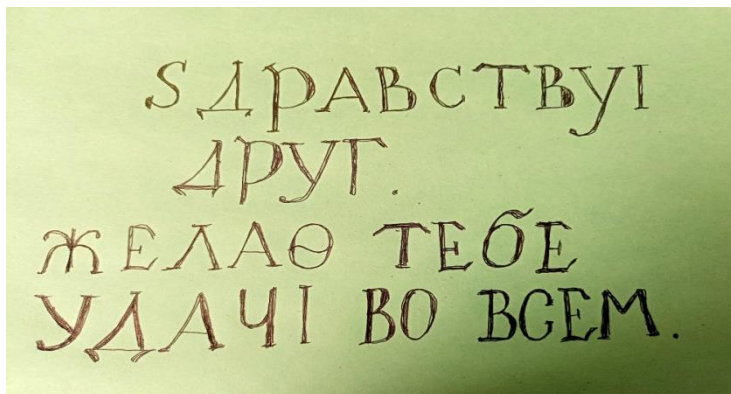 ЅДРАВСТВУІ
ДРУГ.
ЖЕЛАѲ ТЕБЕ
УДАЧІ ВО ВСЕМ.